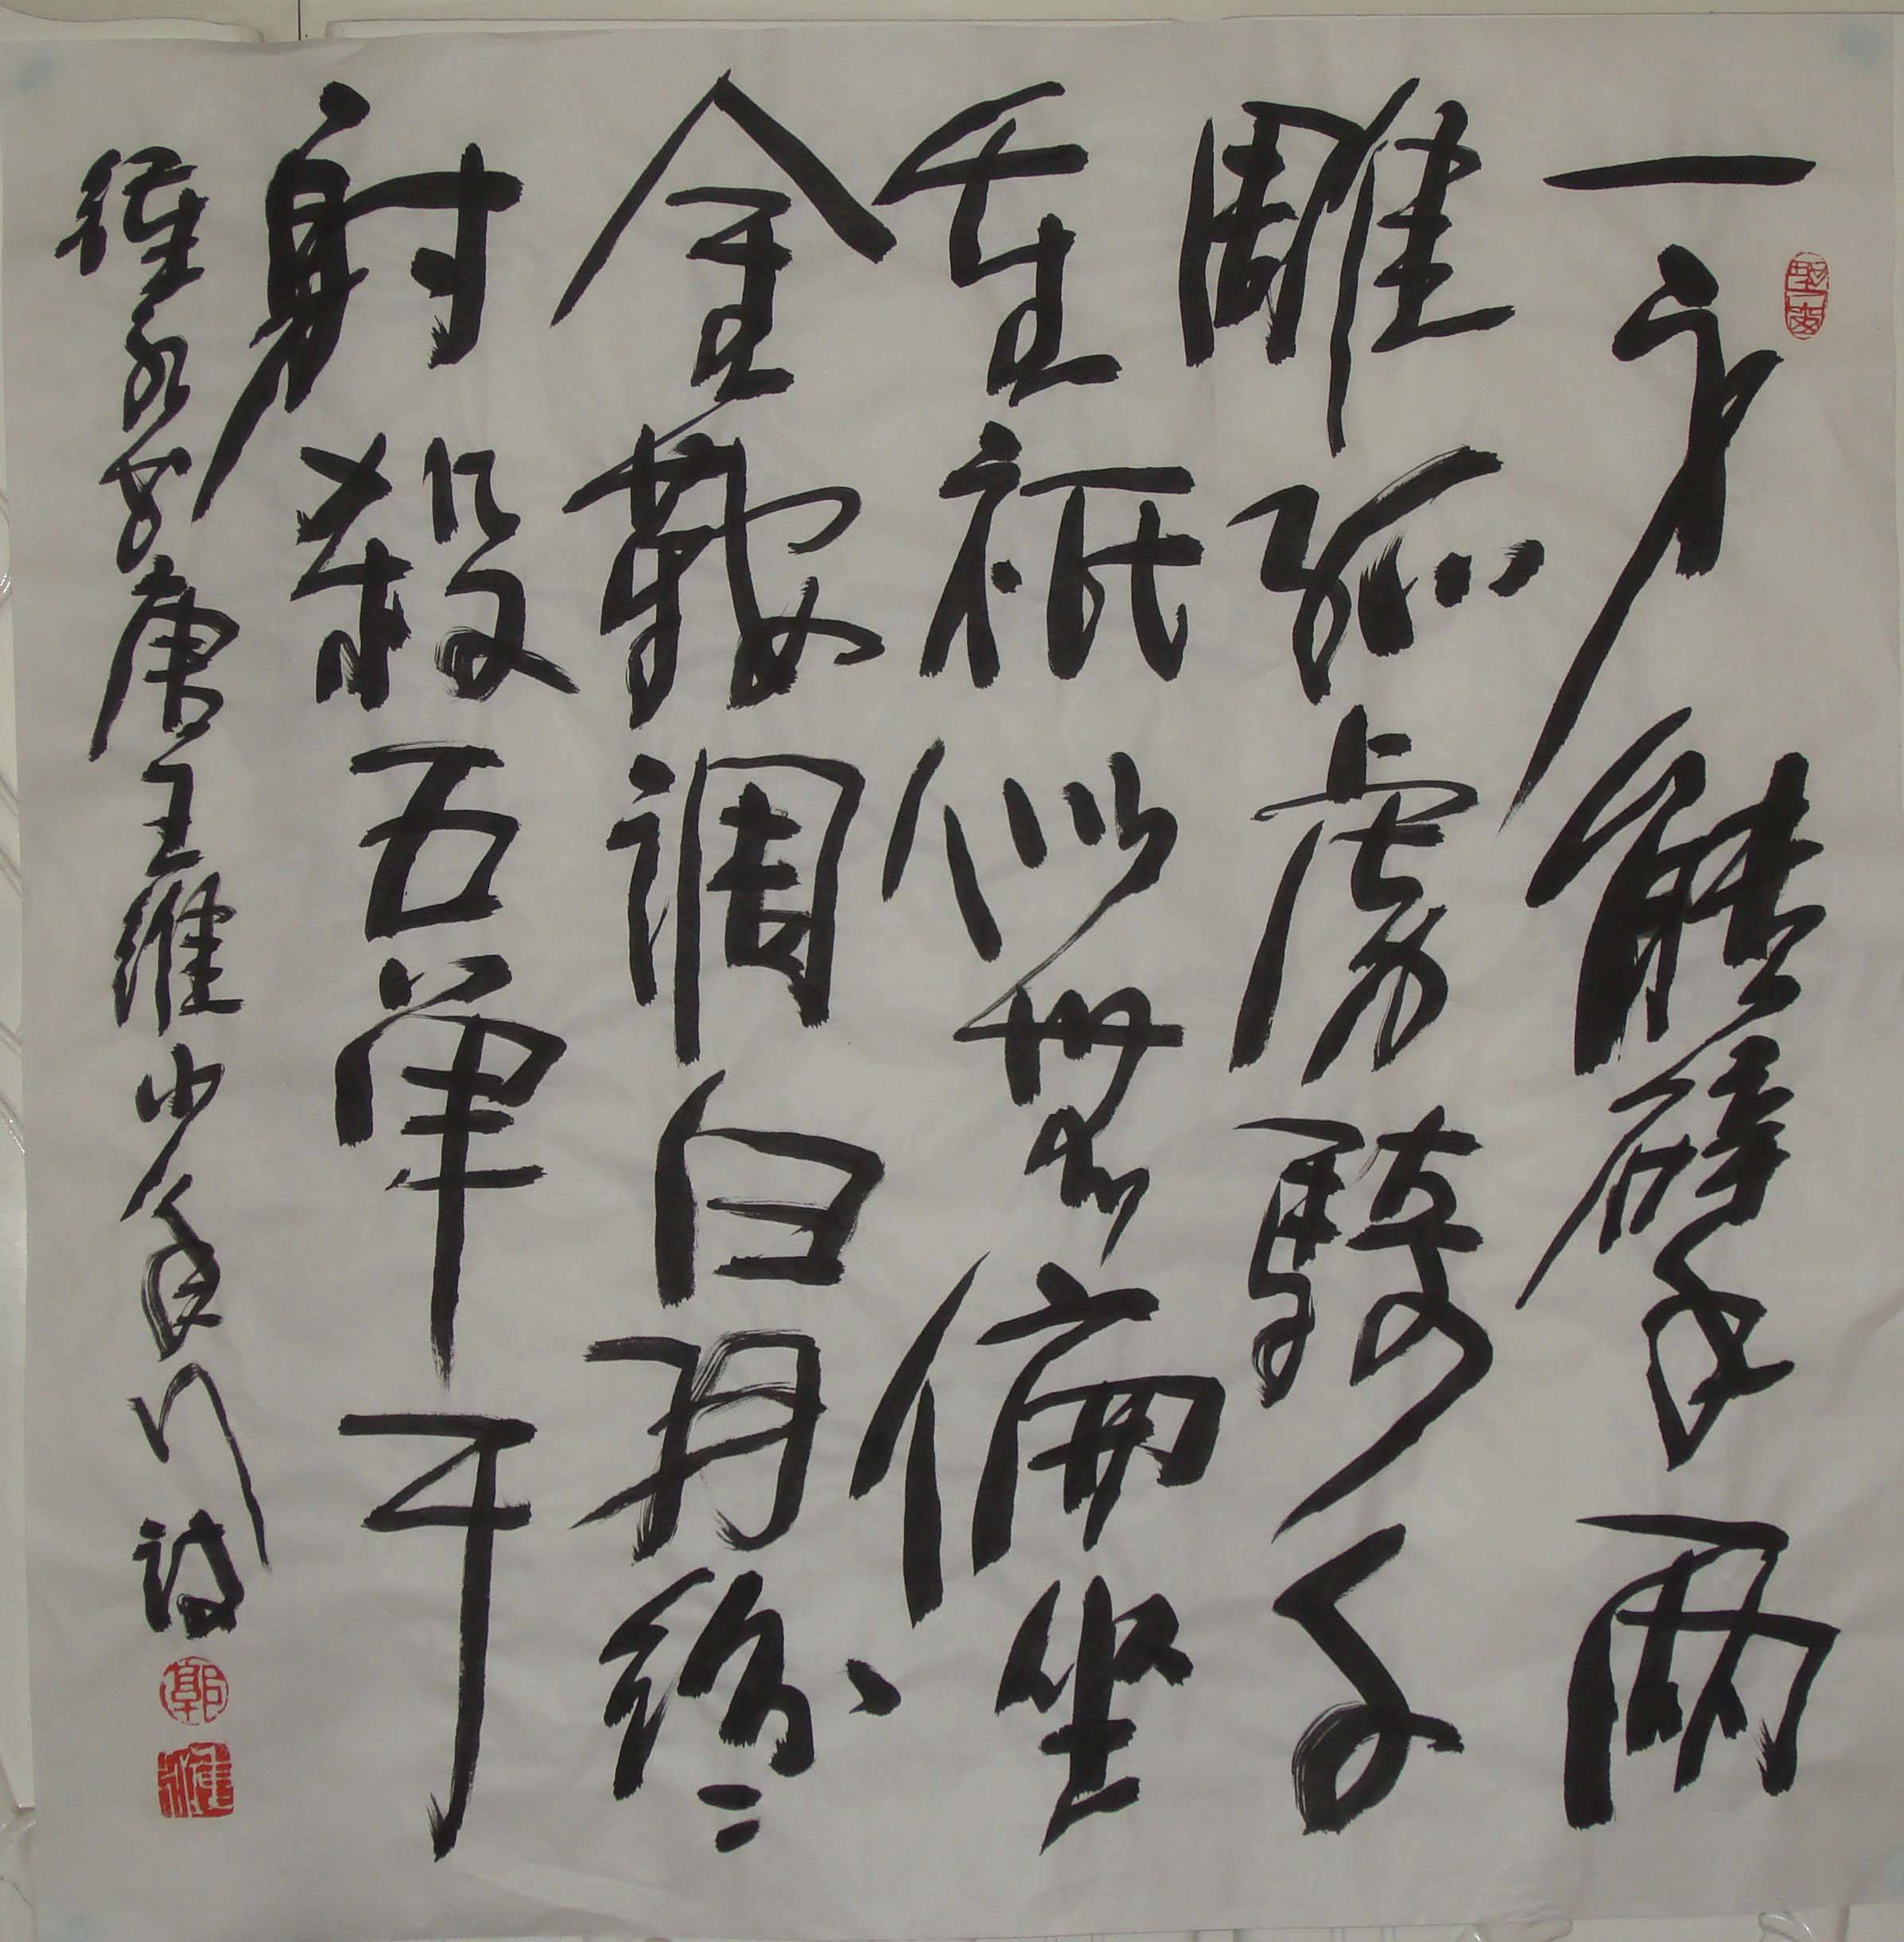 一身能擘兩
雕弧虜騎千
重祇似無偏坐
金鞍調白羽紛々
射殺五单于
永书唐王維少年行詩
郭